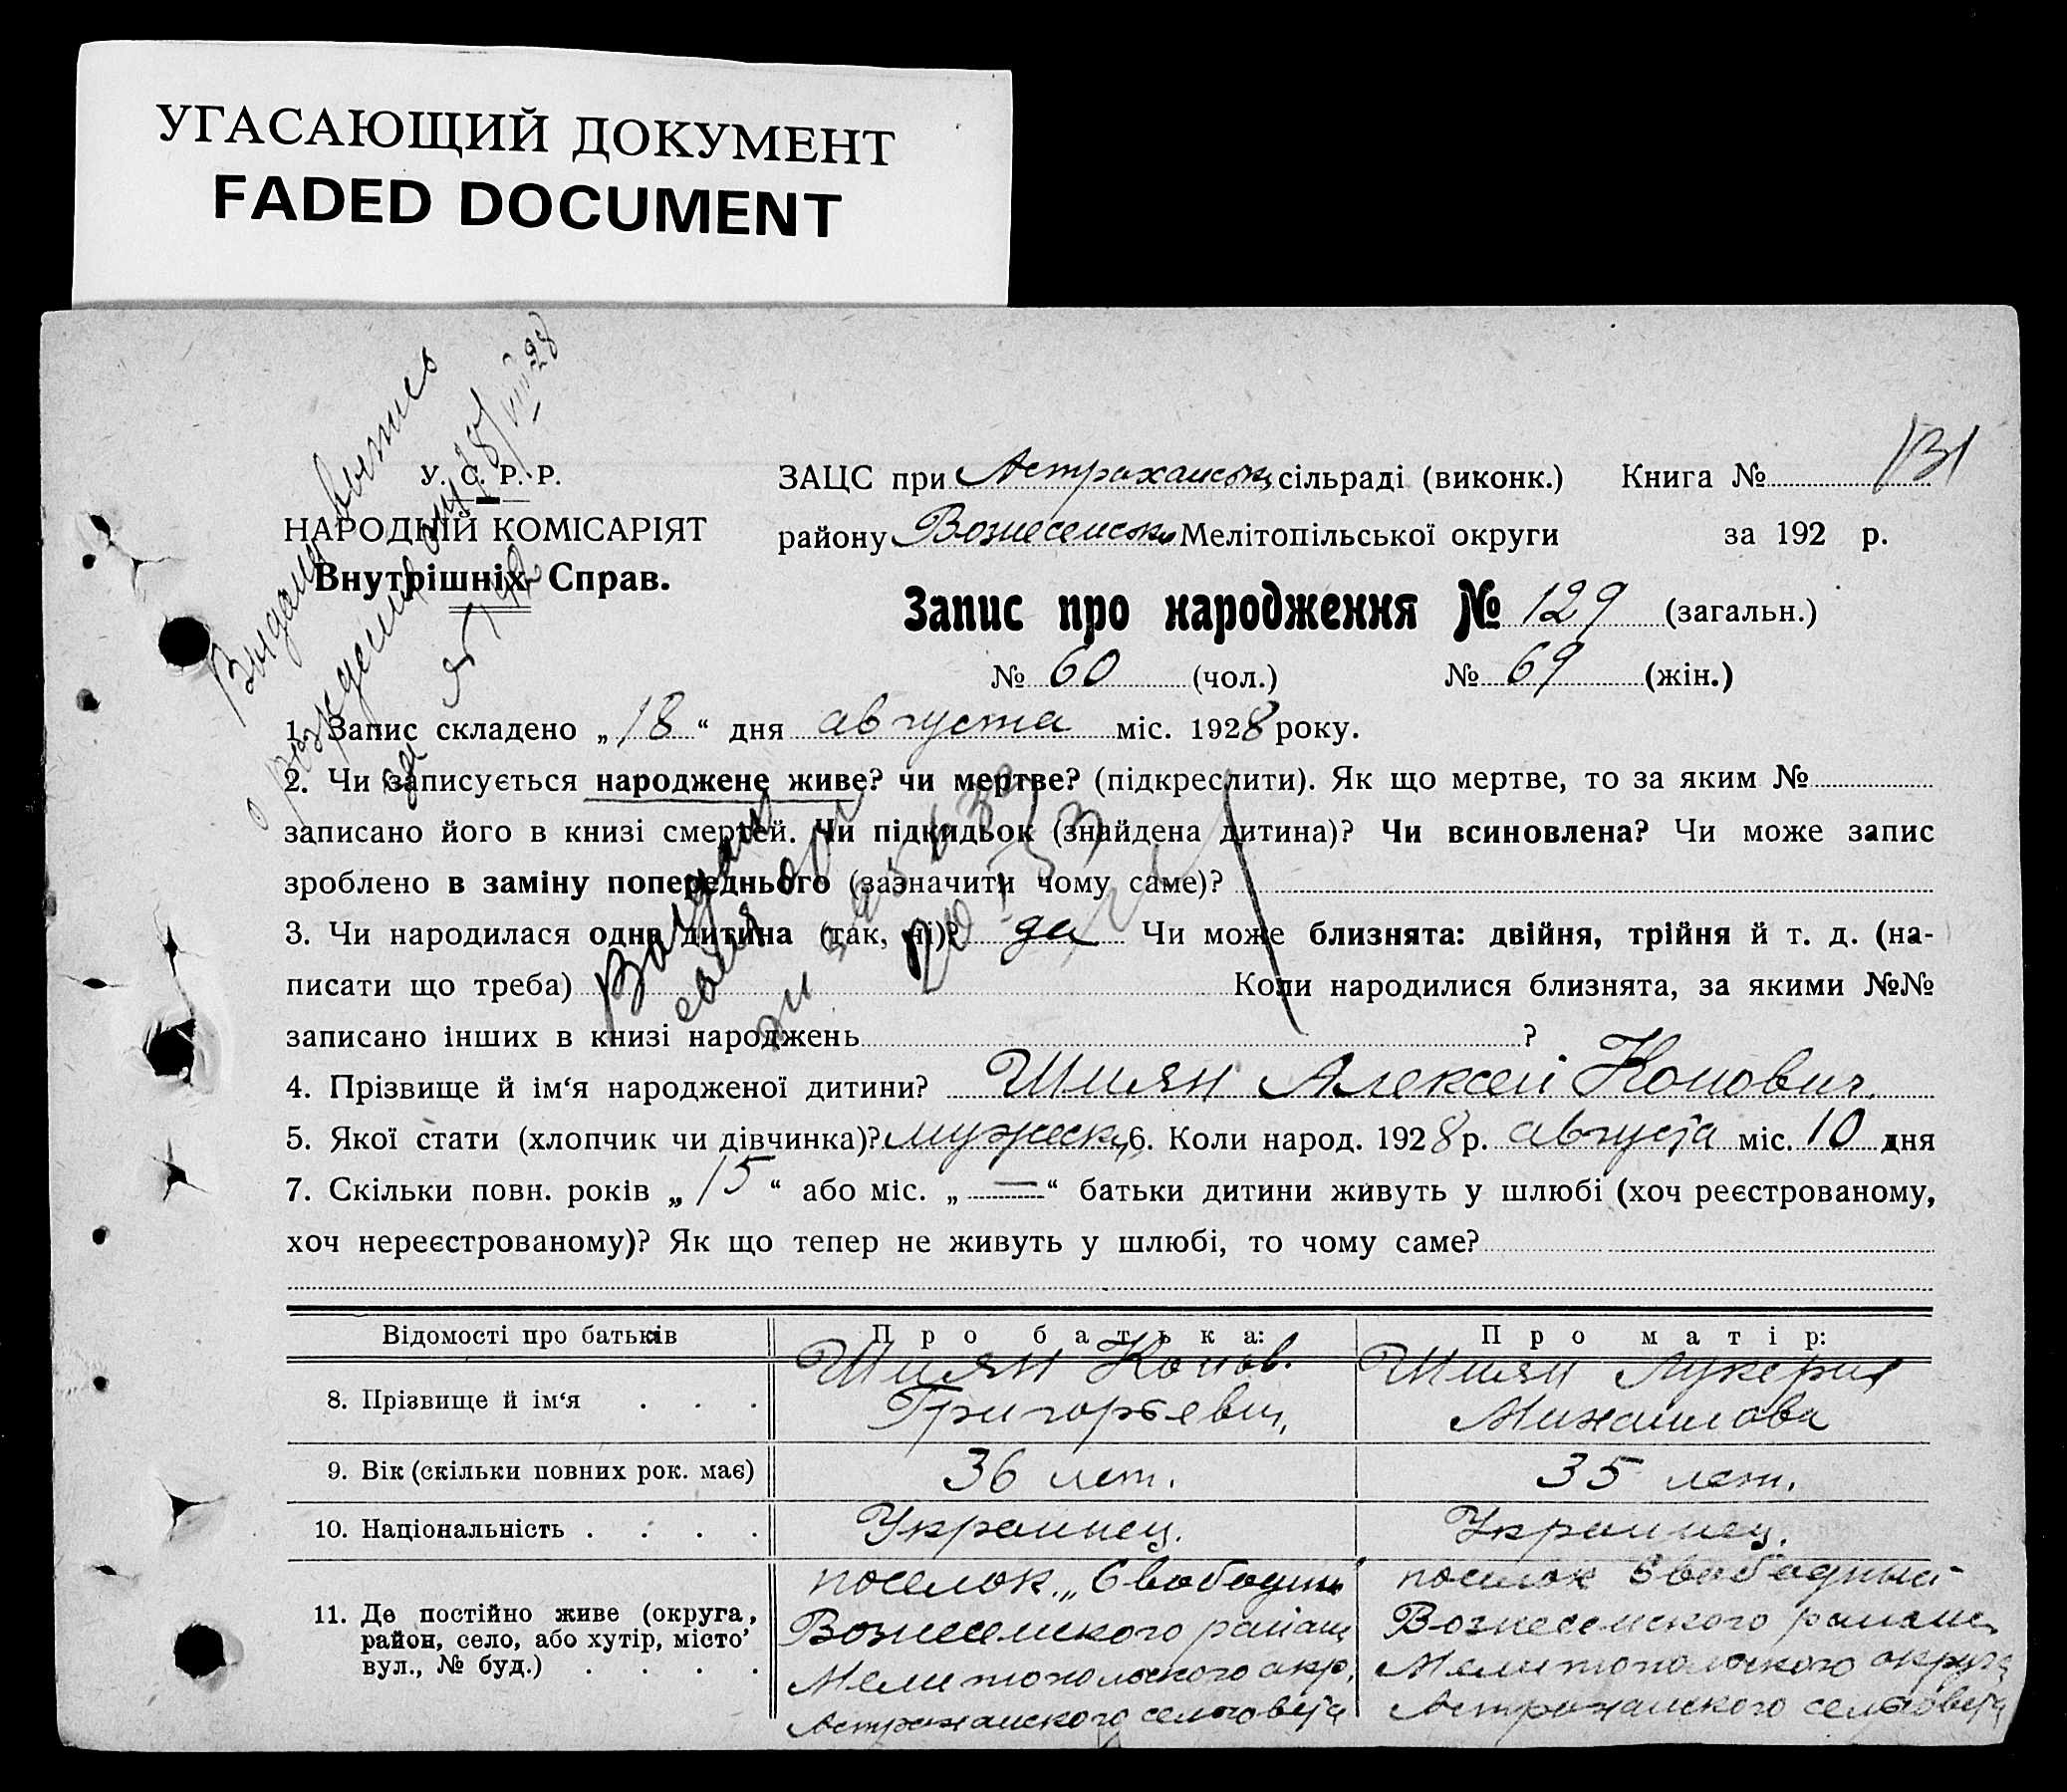 УГАСАЮЩИЙ ДОКУМЕНТ
FADED DOCUMENT
Выдана выпись
о рождении 18/VIII 28
У. С. Р. Р.
НАРОДНІЙ КОМІСАРІЯТ
Внутрішніх Справ.
ЗАЦС при Астраханськ. сільраді (виконк.) Книга № 131
району Вознесенськ. Мелітопільської округи за 192 р.
Запис про народження № 129 (загальн.)
№ 60 (чол.) № 69 (жін.)
1. Запис складено „ 18 “ дня августа міс. 1928 року.
2. Чи записується народжене живе? чи мертве? (підкреслити). Як що мертве, то за яким №
записано його в книзі смертей. Чи підкидьок (знайдена дитина)? Чи всиновлена? Чи може запис
зроблено в заміну попереднього (зазначити чому саме)?
3. Чи народилася одна дитина (так, ні)? да Чи може близнята: двійня, трійня й т. д. (на-
писати що треба) Коли народилися близнята, за якими №№
записано інших в книзі народжень ?
4. Прізвище й ім‘я народженої дитини? Шиян Алексей Конович.
5. Якої стати (хлопчик чи дівчинка)? мужеск. 6. Коли народ. 1928 р. августа міс. 10 дня
7. Скільки повн. років „ 15 “ або міс. „ — “ батьки дитини живуть у шлюбі (хоч реєстрованому,
хоч нереєстрованому)? Як що тепер не живуть у шлюбі, то чому саме?
Відомості про батьків Про батька: Про матір:
8. Прізвище й ім‘я . . . Шиян Конов. Григорьевич, Шиян Лукерия Михаилова
9. Вік (скільки повних рок. має) 36 лет. 35 лет.
10. Національність . . . . Украинец. Украинец.
11. Де постійно живе (округа, район, село, або хутір, місто, вул., № буд.) . . . .
поселок „Свободный“ поселок Свободный
Вознесенского района Вознесенского района
Мелитопольского окр. Мелитопольского округа
Астраханского сельсовета Астраханского сельсовета